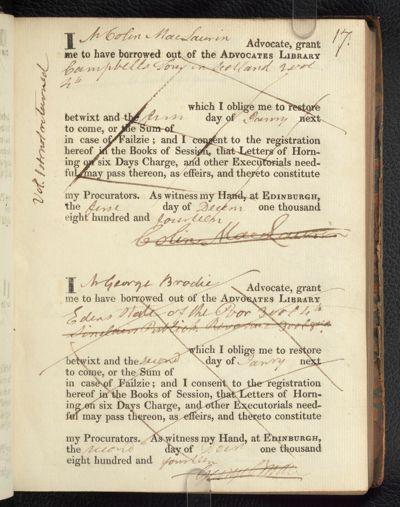 17.
I Mr Colin MacLaurin Advocate, grant
me to have borrowed out of the ADVOCATES LIBRARY
Campbells Tour in Scotland 2 vol
4to
which I oblige me to restore
betwixt and the first day of Janry next
to come, or the Sum of
in case of Failzie; and I consent to the registration
hereof in the Books of Session, that Letters of Horn-
ing on six Days Charge, and other Executorials need-
ful may pass thereon, as effeirs, and thereto constitute
my Procurators. As witness my Hand, at EDINBURGH,
the first day of Decem one thousand
eight hundred and fourteen
Colin MacLaurin
Vol. 1st not returned
I Mr George Brodie Advocate, grant
me to have borrowed out of the ADVOCATES LIBRARY
Edens State of the Poor 3 vol 4to
Sinclairs Publick Revenue
which I oblige me to restore
betwixt and the second day of Janry next
to come, or the Sum of
in case of Failzie; and I consent to the registration
hereof in the Books of Session, that Letters of Horn-
ing on six Days Charge, and other Executorials need-
ful may pass thereon, as effeirs, and thereto constitute
my Procurators. As witness my Hand, at EDINBURGH,
the second day of Decr one thousand
eight hundred and fourteen
George Brodie